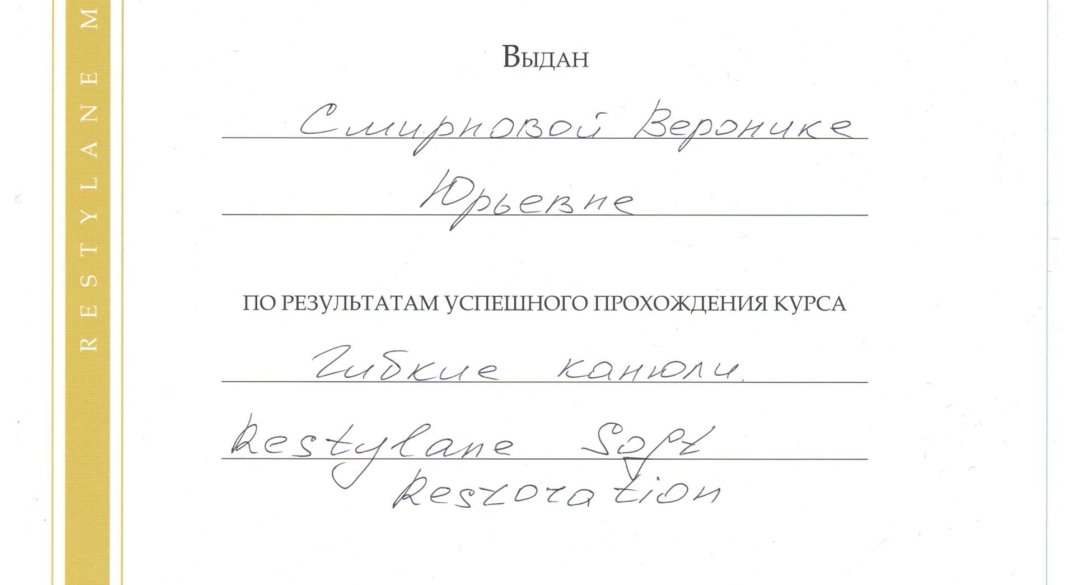 RESTYLANE M
Выдан
Смирновой Веронике
Юрьевне
ПО РЕЗУЛЬТАТАМ УСПЕШНОГО ПРОХОЖДЕНИЯ КУРСА
Гибкие канюли.
Restylane Soft
Restoration